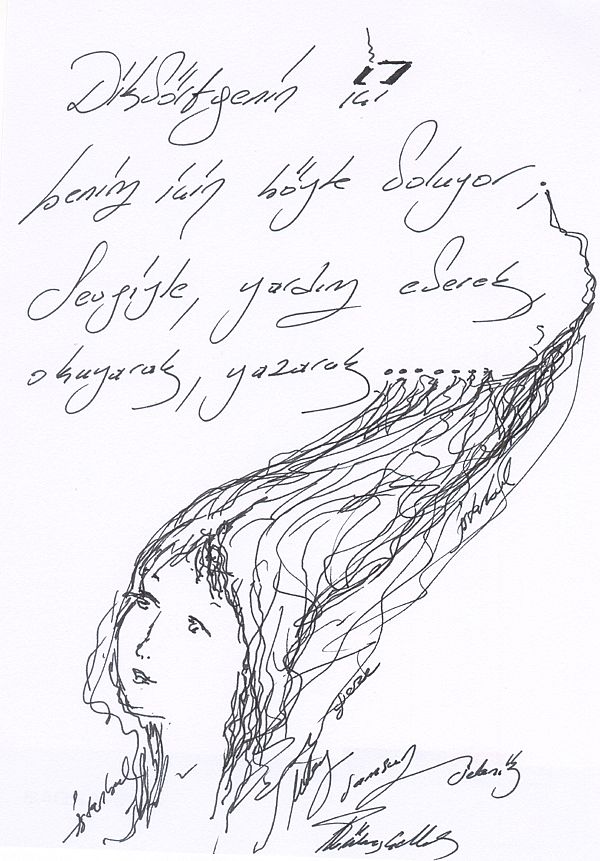 Dikdörtgenin içi
benim için böyle doluyor;
Sevgiyle, yardım ederek,
okuyarak, yazarak........
İstanbul
İstanbul